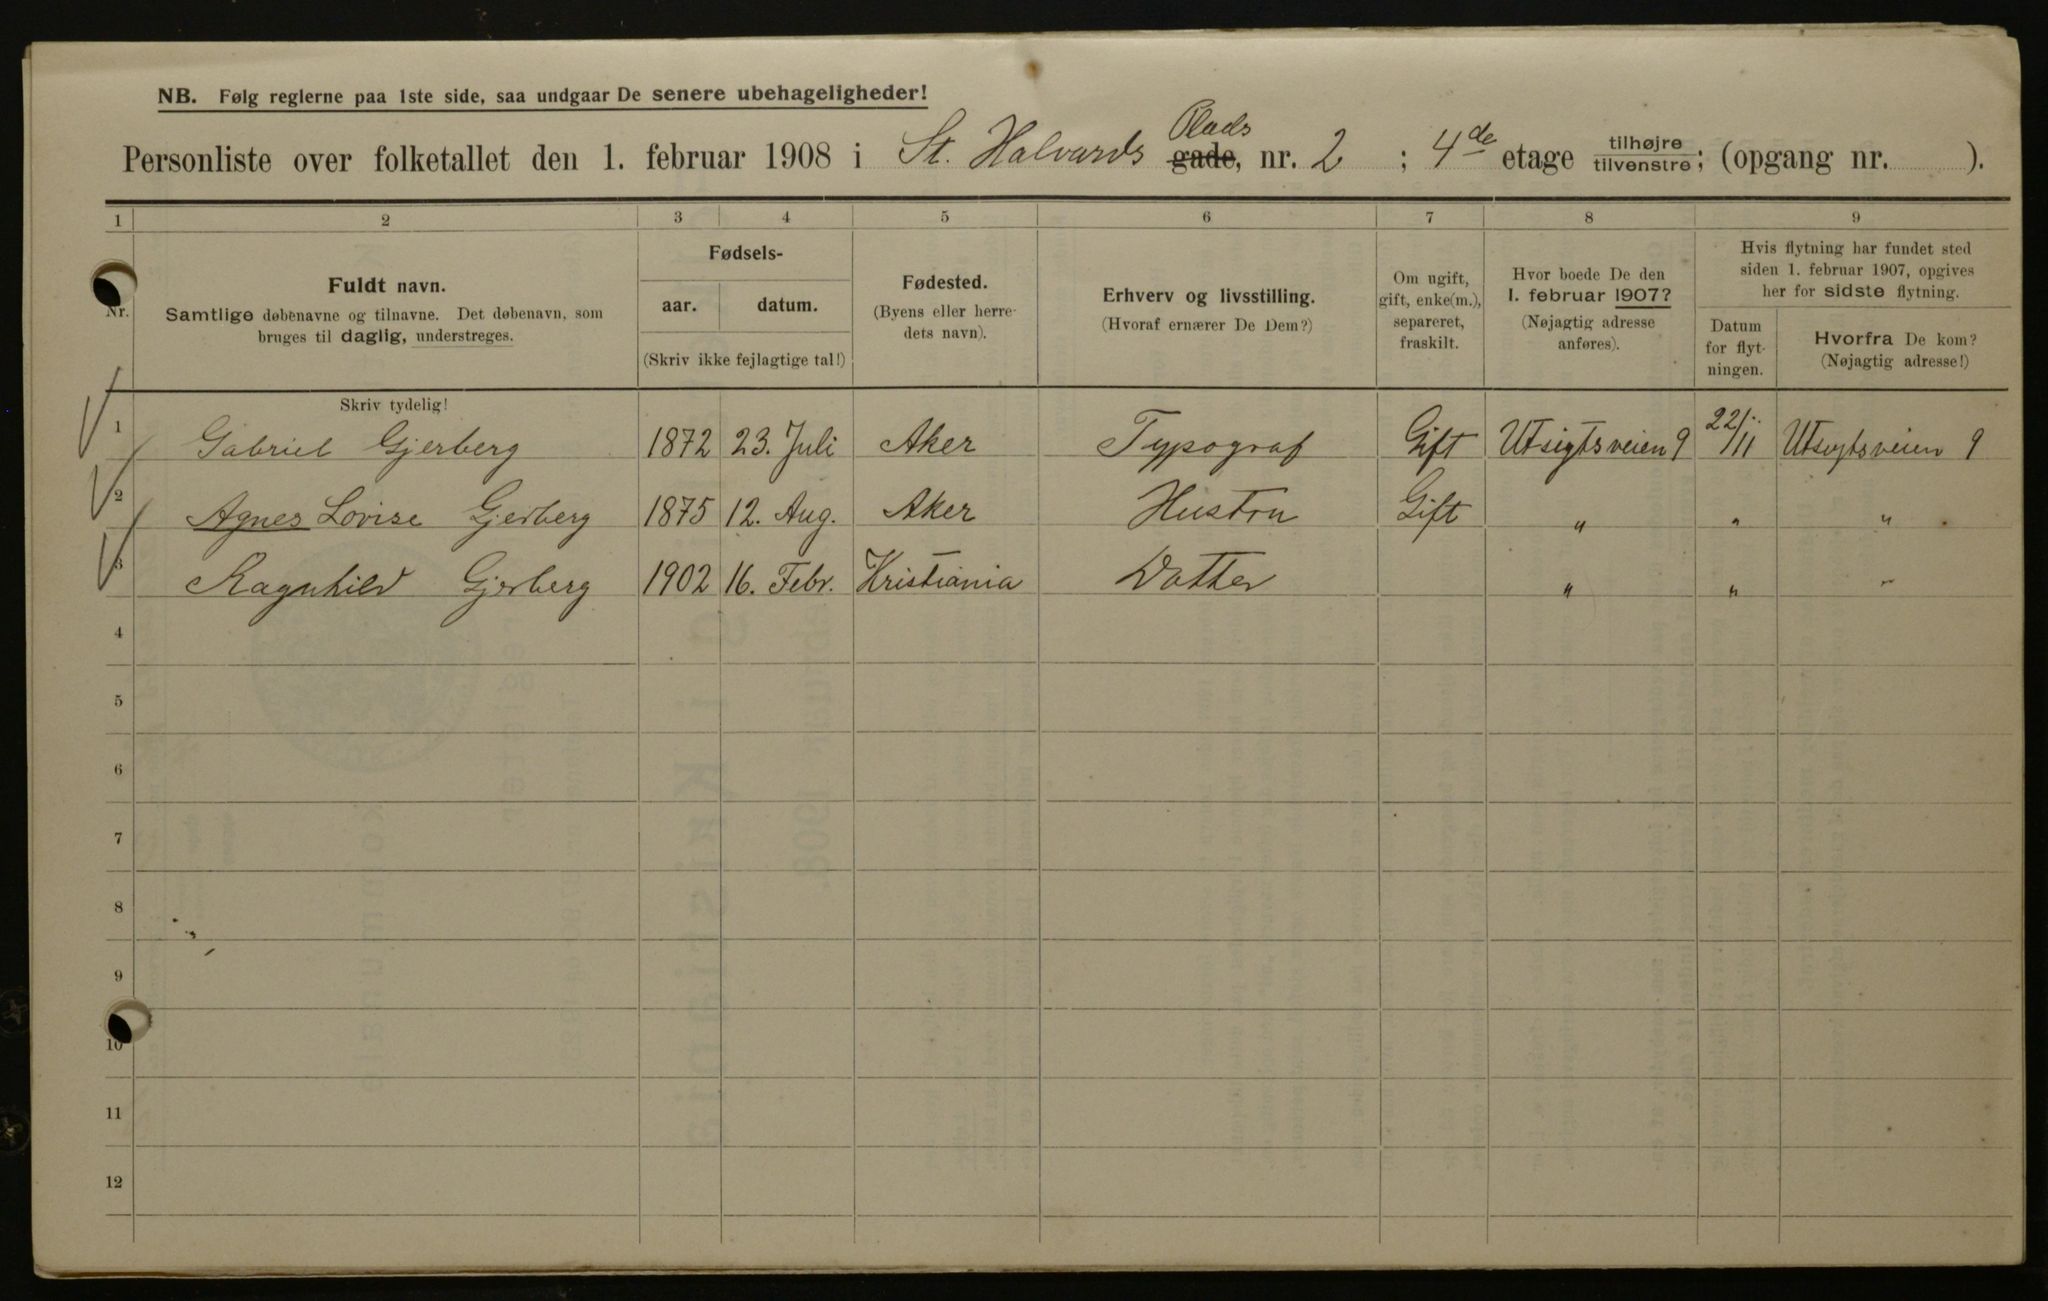 NB. Følg reglerne paa 1ste side, saa undgaar De senere ubehageligheder!
Plads
Personliste over folketallet den 1. februar 1908 i St. Halvards gade, nr. 2 ; 4de etage tilhøjre tilvenstre; (opgang nr. ).
1 2 3 4 5 6 7 8 9
Nr.
Fuldt navn.
Samtlige døbenavne og tilnavne. Det døbenavn, som
bruges til daglig, understreges.
Fødsels-
aar. datum.
(Skriv ikke fejlagtige tal!)
Fødested.
(Byens eller herre-
dets navn).
Erhverv og livsstilling.
(Hvoraf ernærer De Dem?)
Om ugift,
gift, enke(m.),
separeret,
fraskilt.
Hvor boede De den
1. februar 1907?
(Nøjagtig adresse
anføres).
Hvis flytning har fundet sted
siden 1. februar 1907, opgives
her for sidste flytning.
Datum
for flyt-
ningen.
Hvorfra De kom?
(Nøjagtig adresse!)
Skriv tydelig!
1 Gabriel Gjerberg 1872 23. Juli Aker Typograf Gift Utsigtsveien 9 22/11 Utsigtsveien 9
2 Agnes Lovise Gjerberg 1875 12. Aug. Aker Hustru Gift " " "
3 Ragnhild Gjerberg 1902 16. Febr. Kristiania Datter " " "
4
5
6
7
8
9
10
11
12